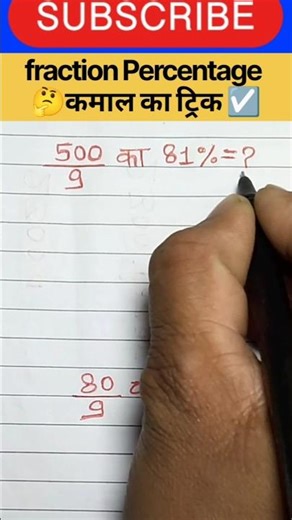 SUBSCRIBE
fraction Percentage
🤔कमाल का ट्रिक ☑️
500/9 का 81%=?
80/9